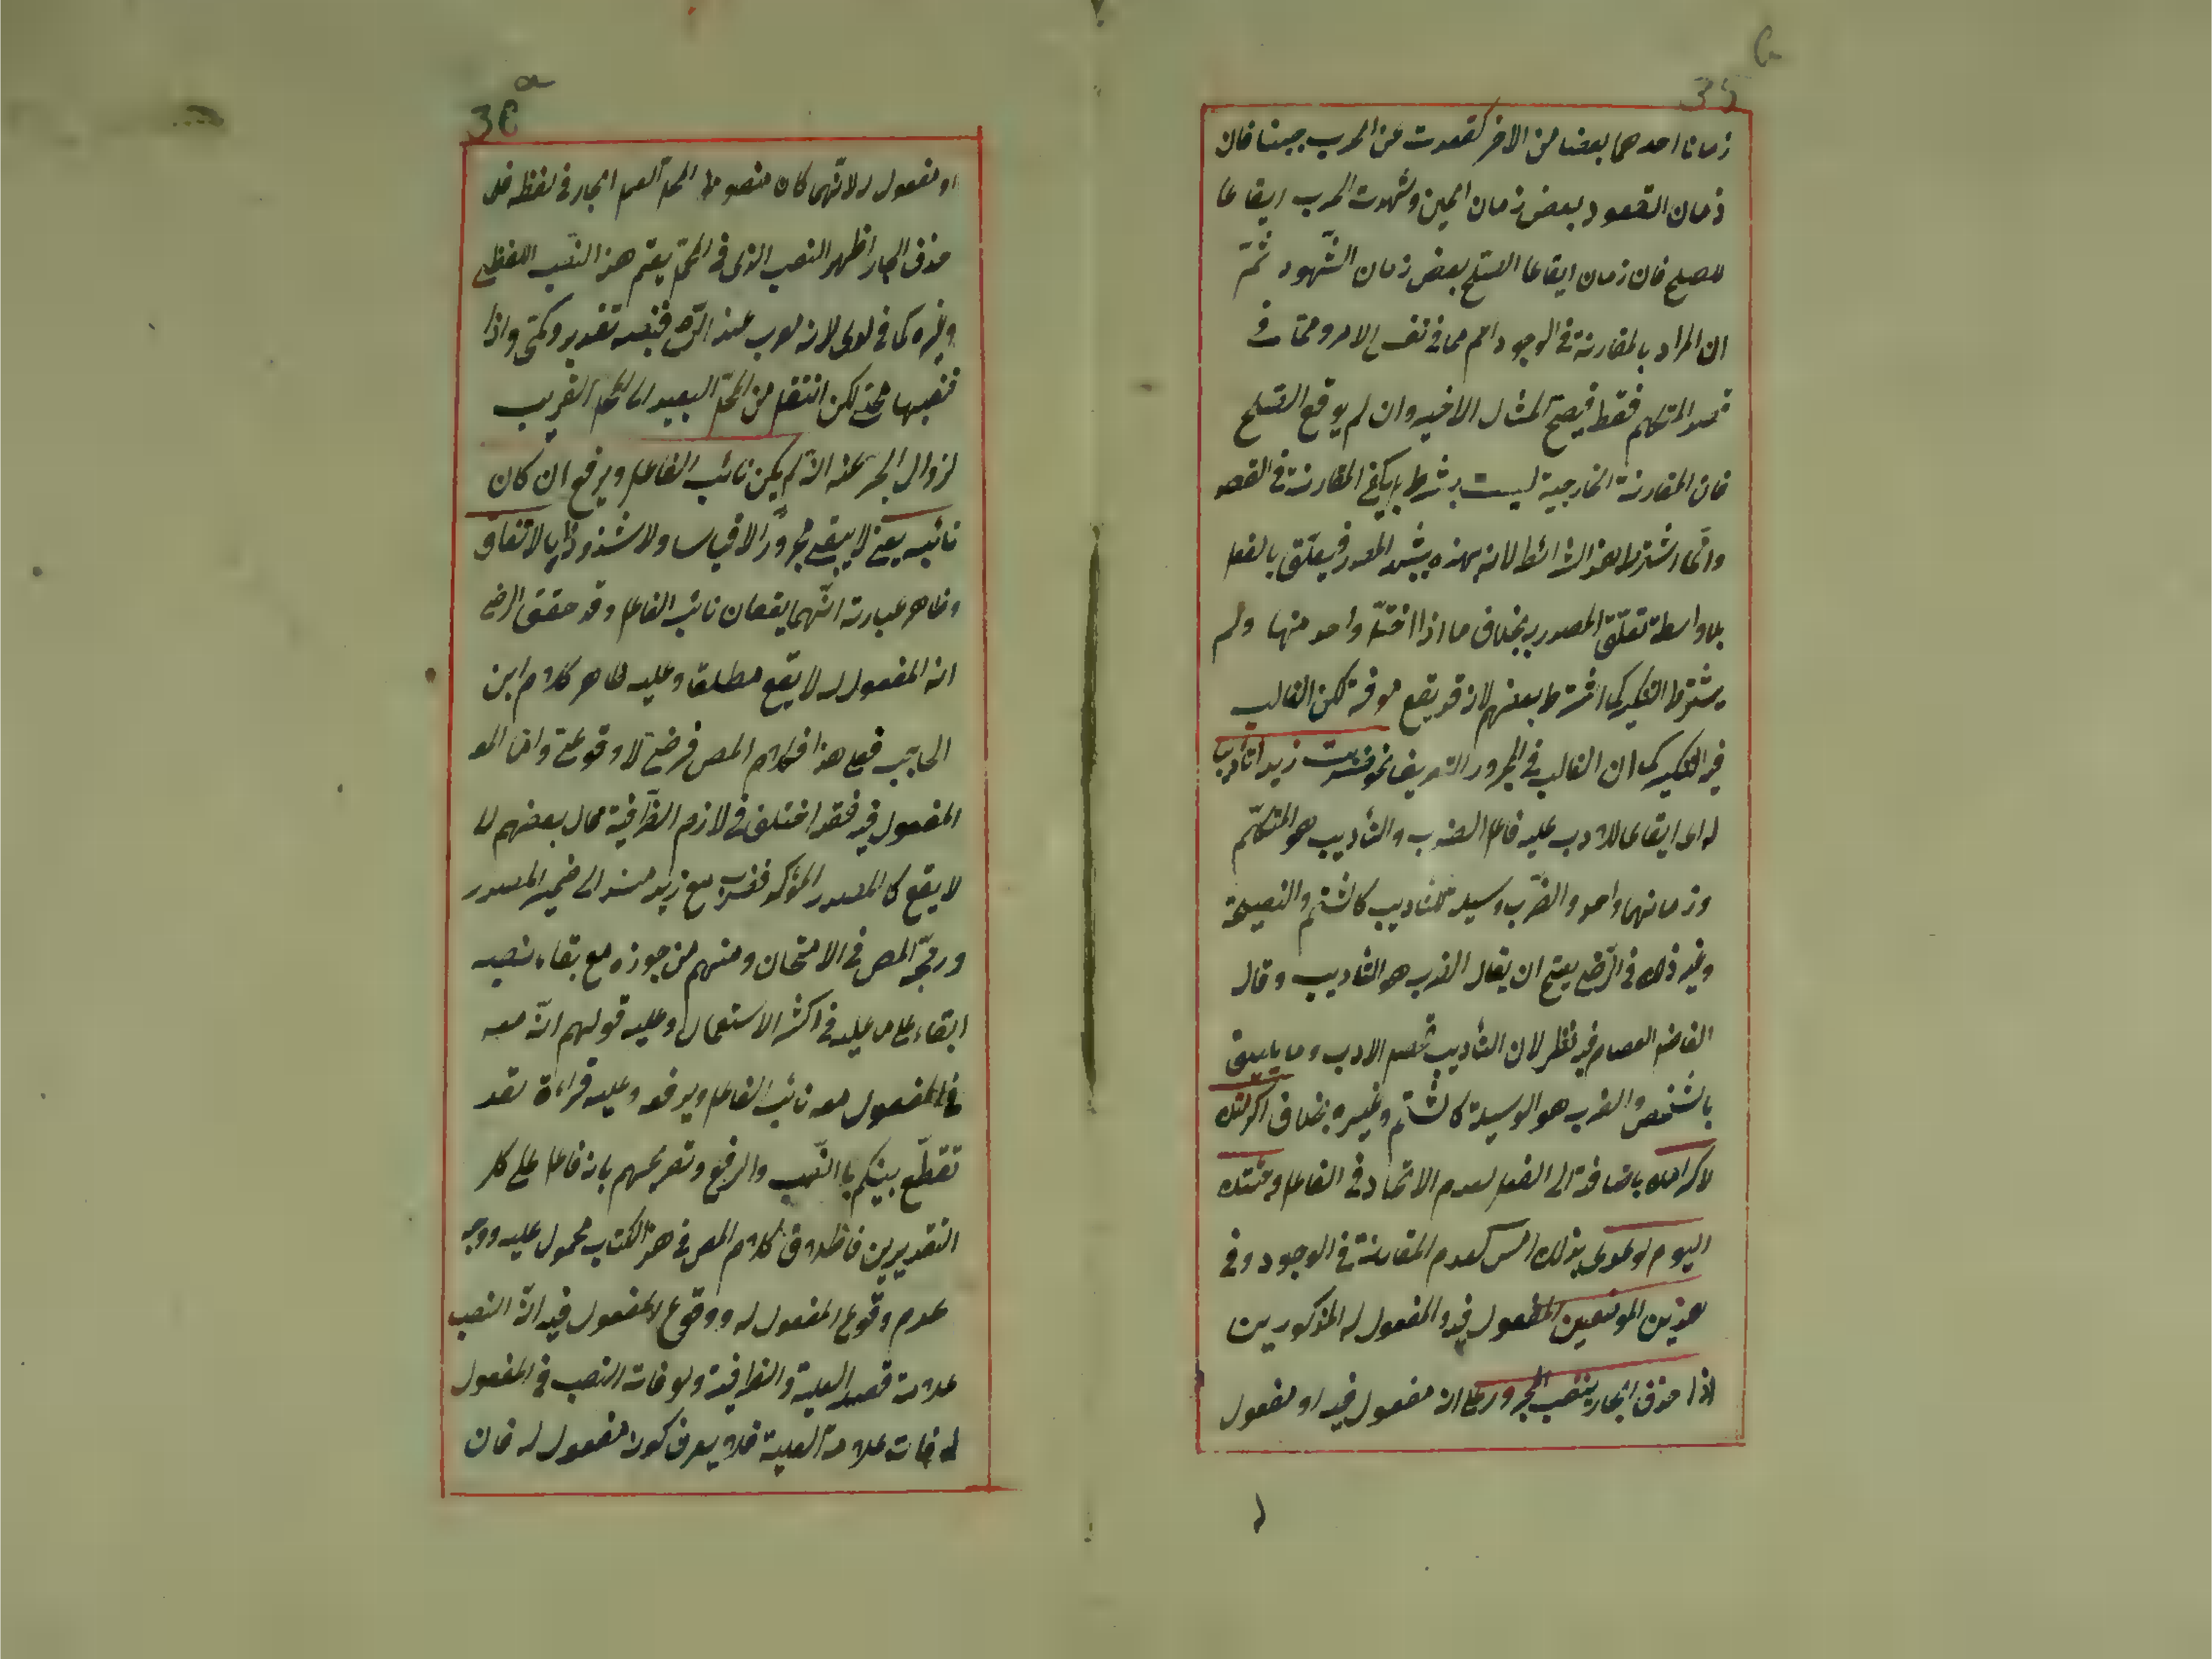 زمانا احدهما بعضا من الاخر كقعدت عن الحرب جبنا فان
زمان القعود بعض زمان الجبن وشهدت الحرب ايقاعا
للصلح فان زمان ايقاع الصلح بعض زمان الشهود ثمّ
ان المراد بالمقارنة في الوجود اعم مما في نفس الامر ومما في
قصد المتكلم فقط فيصح المثال الاخير وان لم يوقع الصلح
فان المقارنة الخارجية ليست بشرط بل يكفي المقارنة في القصد
وانما اشترط هذه الشرائط لانه بهذه يشبه المصدر فيتعلق بالفعل
بلا واسطة تعلق المصدر به بخلاف ما اذا اختل واحد منها ولم
يشترط التنكير كما اشترط بعضهم لانه قد يقع معرفة لكن الغالب
فيه التنكير كما ان الغالب في المجرور التعريف نحو ضربت زيدا تأديبا
له اى ايقاعا للادب عليه فاعل الضرب والتأديب هو المتكلّم
وزمانهما واحد والضرب وسيلة للتأديب كالشتم والنصيحة
وغير ذلك في الرضى يصح ان يقال الضرب هو التأديب وقال
الفاضل العصام فيه نظر لان التأديب الادب وما يليق
بالشخص والضرب هو الوسيلة كالشتم وغيره بخلاف اكرمتك
لاكرامك باضافته الى الفعل لعدم الاتحاد في الفاعل وجئتك
اليوم لوعدى بذلك امس لعدم المقارنة في الوجود وفي
هذين الموضعين المفعول فيه والمفعول له المذكورين
اذا حذف الجار ينتصب المجرور على انه مفعول فيه او مفعول
ل
او مفعول له لانهما كان منصوبا المحل الجار في لفظه فلما
حذف الجار اظهر النصب الذى في المحل يعم هذا النصب اللفظى
وغيره كما في لدى لانه معرب عند فنصبه تقديرى ومتى واذا
فنصبهما محلى لكن انتقل من المحل البعيد الى المحل القريب
لزوال الجر عنه ان لم يكن نائب الفاعل ويرفع ان كان
نائبه يعنى لا يبقى مجرورا لا قياسا ولا شذوذا بالاتفاق
وظاهر عبارته انّهما يقعان نائب الفاعل وقد حقق الرضى
ان المفعول له لا يقع مطلقا وعليه ظاهر كلام ابن
الحاجب فعلى هذا فكلام المص فرضى لا وقوعى واما
المفعول فيه فقد اختلف في لازم الظرفية قال بعضهم
لا يقع كالمصدر المؤكد مع زيد مسند الى ضمير المصدر
ورجّحه المص في الامتحان ومنهم من جوزه مع بقاء نصبه
ابقاء على ما عليه في اكثر الاستعمال وعليه قولهم انّ معه
في المفعول معه نائب الفاعل ويرفعه وعليه قراءة لقد
تقطّع بينكم بالنّصب والرفع وتصريحهم بانه فاعل على كلا
التقديرين فاطلاق كلام المص في هذا الكتاب محمول عليه ووجه
عدم وقوع المفعول له ووقوع المفعول فيه انّ النصب
علامة قصد العلية والظرفية ولو فات النصب في المفعول
له فات علامة العلية فلا يعرف كونه مفعول له فان